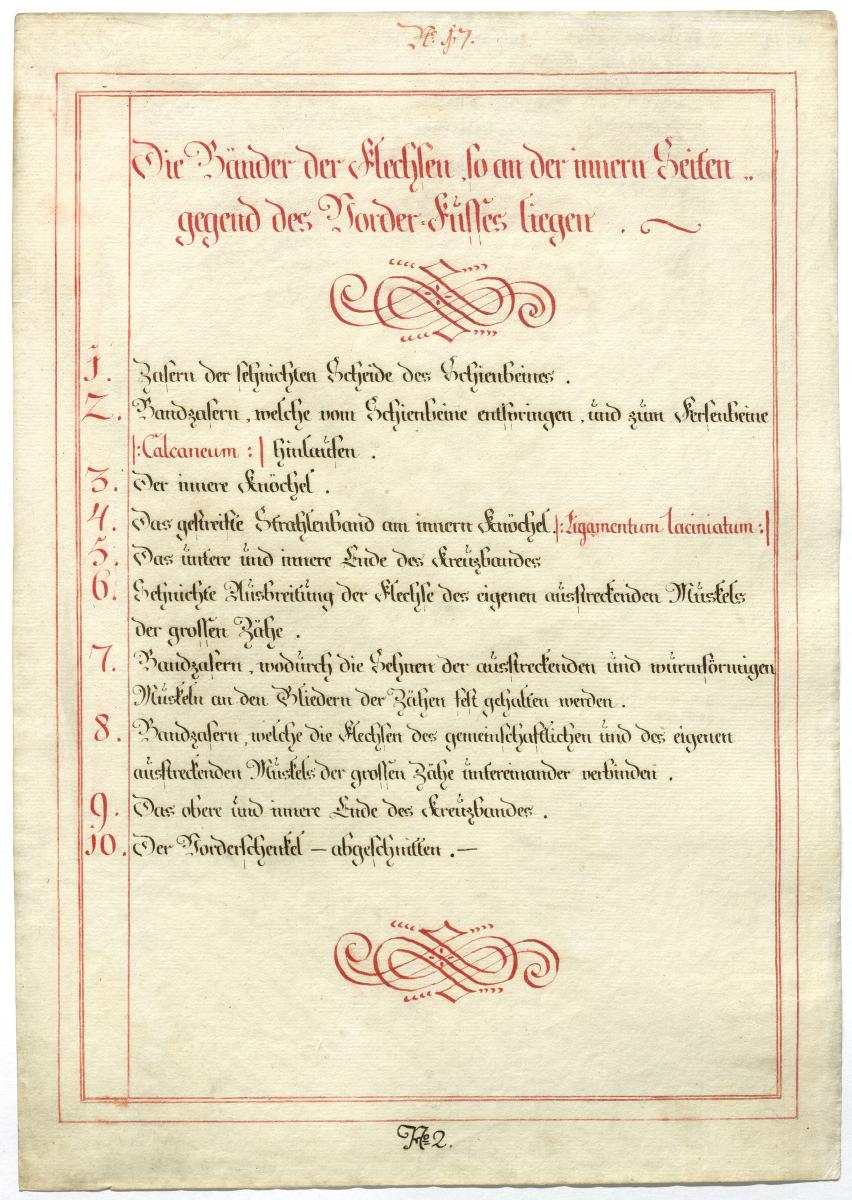 No. 17.
Die Bänder der Flechsen, so an der innern Seiten„
gegend des Vorder-Füsses liegen.
1. Zasern der sehnichten Scheide des Schienbeines.
2. Bandzasern, welche vom Schienbeine entspringen, und zum Fersenbeine
|: Calcaneum :| hinlaufen.
3. Der innere Knöchel.
4. Das gestreifte Strahlenband am innern Knöchel. |: Ligamentum laciniatum :|
5. Das untere und innere Ende des Kreuzbandes
6. Sehnichte Ausbreitung der Flechse des eigenen ausstreckenden Muskels
der grossen Zähe.
7. Bandzasern, wodurch die Sehnen der ausstreckenden und wurmförmigen
Muskeln an den Gliedern der Zähen fest gehalten werden.
8. Bandzasern, welche die Flechsen des gemeinschaftlichen und des eigenen
ausstreckenden Muskels der grossen Zähe untereinander verbinden.
9. Das obere und innere Ende des Kreuzbandes.
10. Der Vorderschenkel — abgeschnitten. —
No 2.